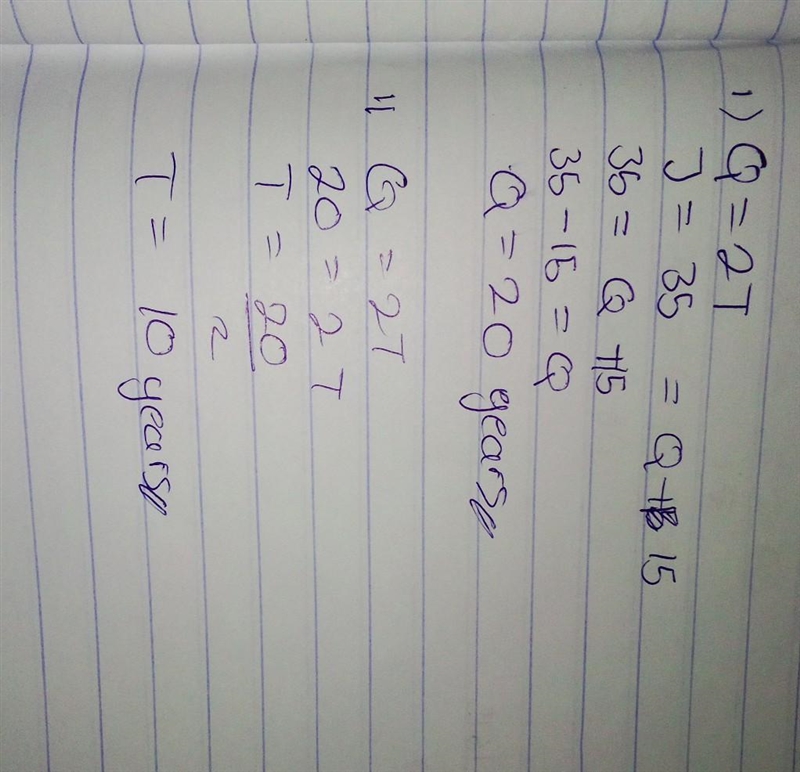 1) Q = 2T
J = 35 = Q + 15
35 = Q +15
35 - 15 = Q
Q = 20 years
11 Q = 2T
20 = 2T
T = 20
2
T = 10 years